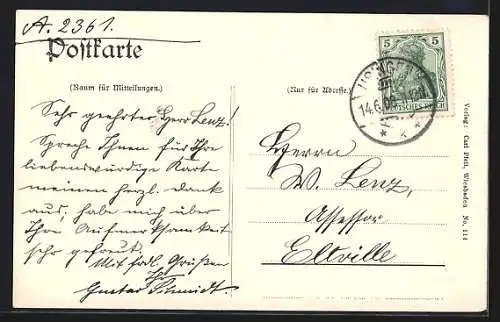 A. 2361.
Postkarte
(Raum für Mitteilungen.)
(Nur für Adresse.)
5 5
DEUTSCHES REICH
14.6.06
Sehr geehrter Herr Lenz!
Spreche Ihnen für Ihre
liebenswürdige Karte
meinen herzl. Dank
aus, habe mich über
Ihre Aufmerksamkeit
sehr gefreut.
Mit frdl. Grüßen
Ihr
Gustav Schmidt.
Herrn
W. Lenz,
Assessor
Eltville
Verlag: Carl Pfeil, Wiesbaden No. 114